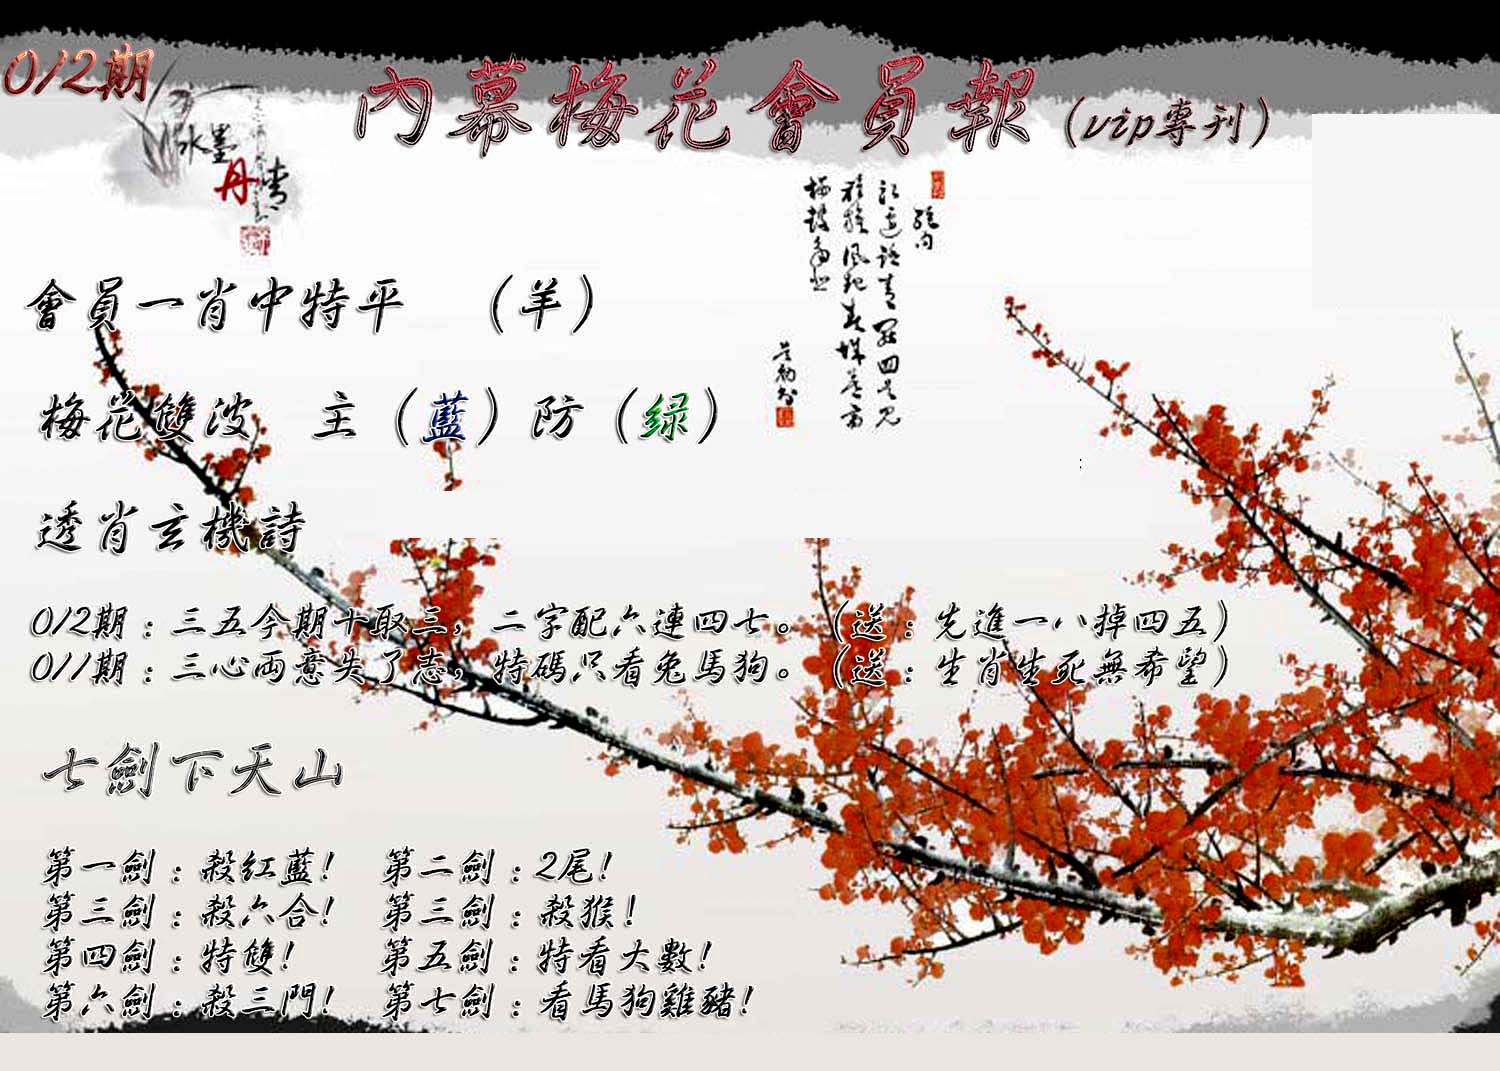 012期
內幕梅花會員報（vip專刊）
水墨
丹青
會員一肖中特平　（羊）
梅花雙波　主（藍）防（绿）
透肖玄機詩
012期：三五今期十取三，二字配六連四七。（送：先進一八掉四五）
011期：三心両意失了志，特碼只看兔馬狗。（送：生肖生死無希望）
七劍下天山
第一劍：殺红藍！　第二劍：2尾！
第三劍：殺六合！　第三劍：殺猴！
第四劍：特雙！　第五劍：特看大數！
第六劍：殺三門！　第七劍：看馬狗雞豬！